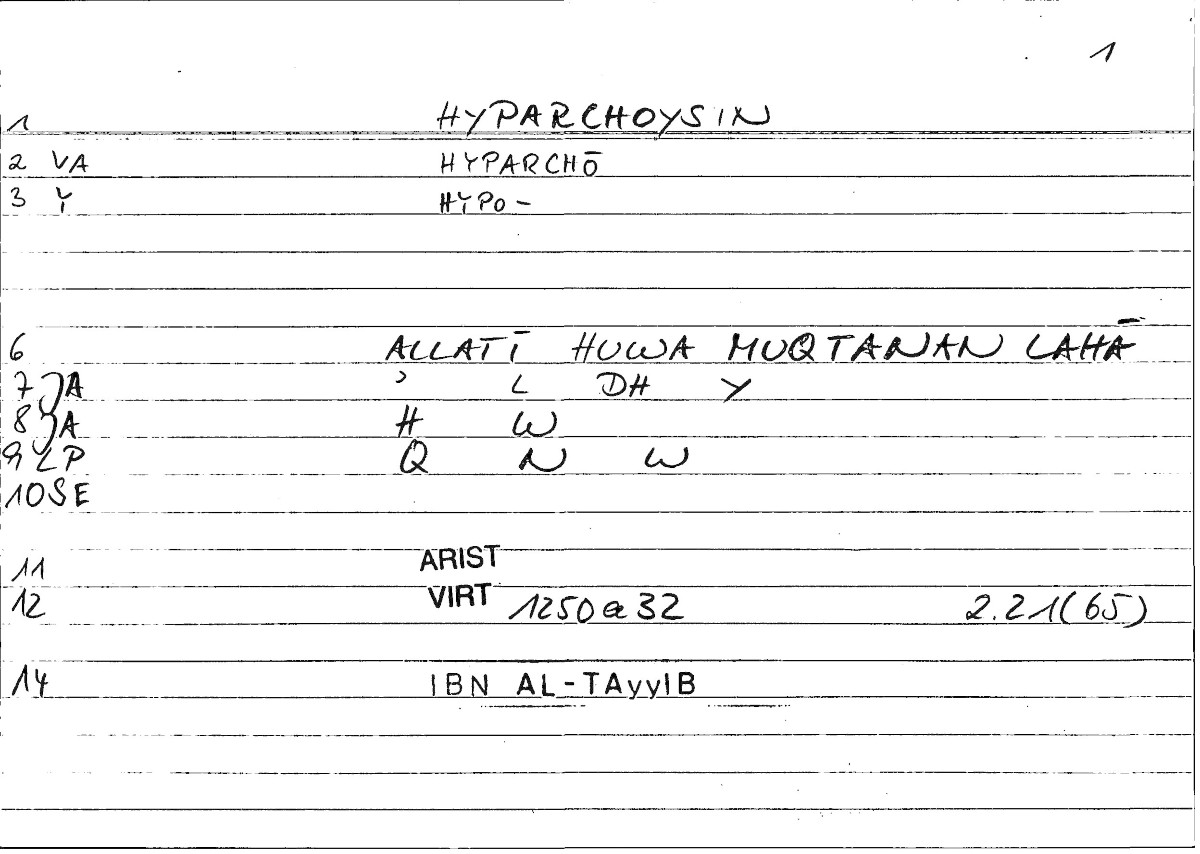 1
1 HYPARCHOYSIN
2 VA HYPARCHŌ
3 Y HYPO-
6 ALLATĪ HUWA MUQTANAN LAHĀ
7 JA ʾ L DH Y
8 JA H W
9 LP Q N W
10 SE
11 ARIST
12 VIRT 1250a32 2.21(65)
14 IBN AL-TAyyIB